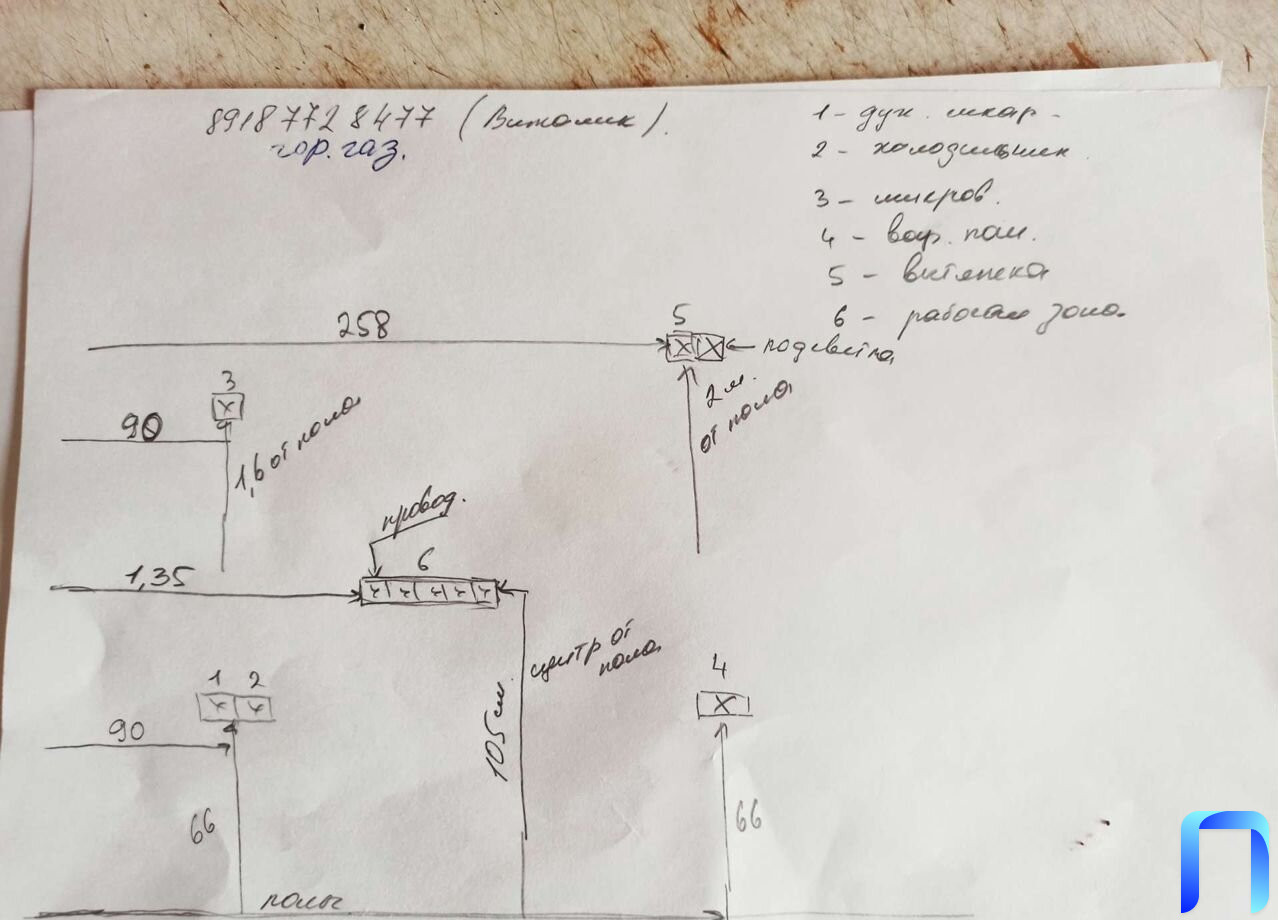 89187728477 (Виталик).
гор. газ.
1 - дух. шкаф -
2 - холодильник
3 - микров.
4 - вар. пан.
5 - витяжка
6 - рабочая зона.
258
5
подсветка
2 м. от пола
3
90
1,6 от пола
провод.
6
1,35
центр от пола
105 см.
1 2
90
66
4
66
полы